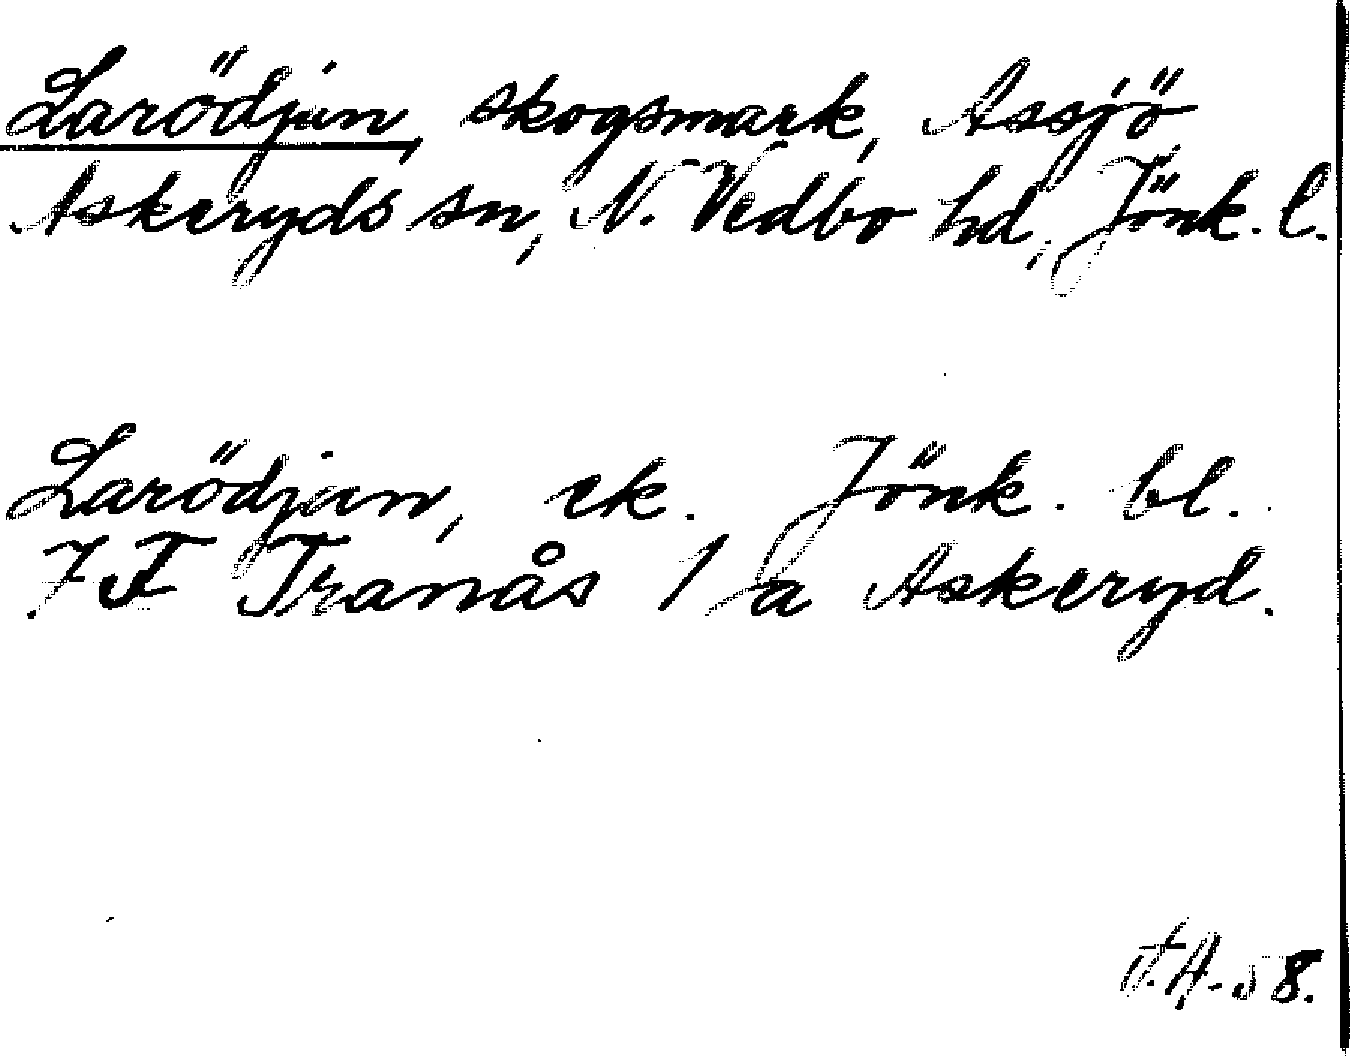 Larödjan, skogsmark, Assjö
Askeryds sn, N. Vedbo hd, Jönk. l.
Larödjan, ek. Jönk. bl.
7 F Tranås 1 a Askeryd.
58.